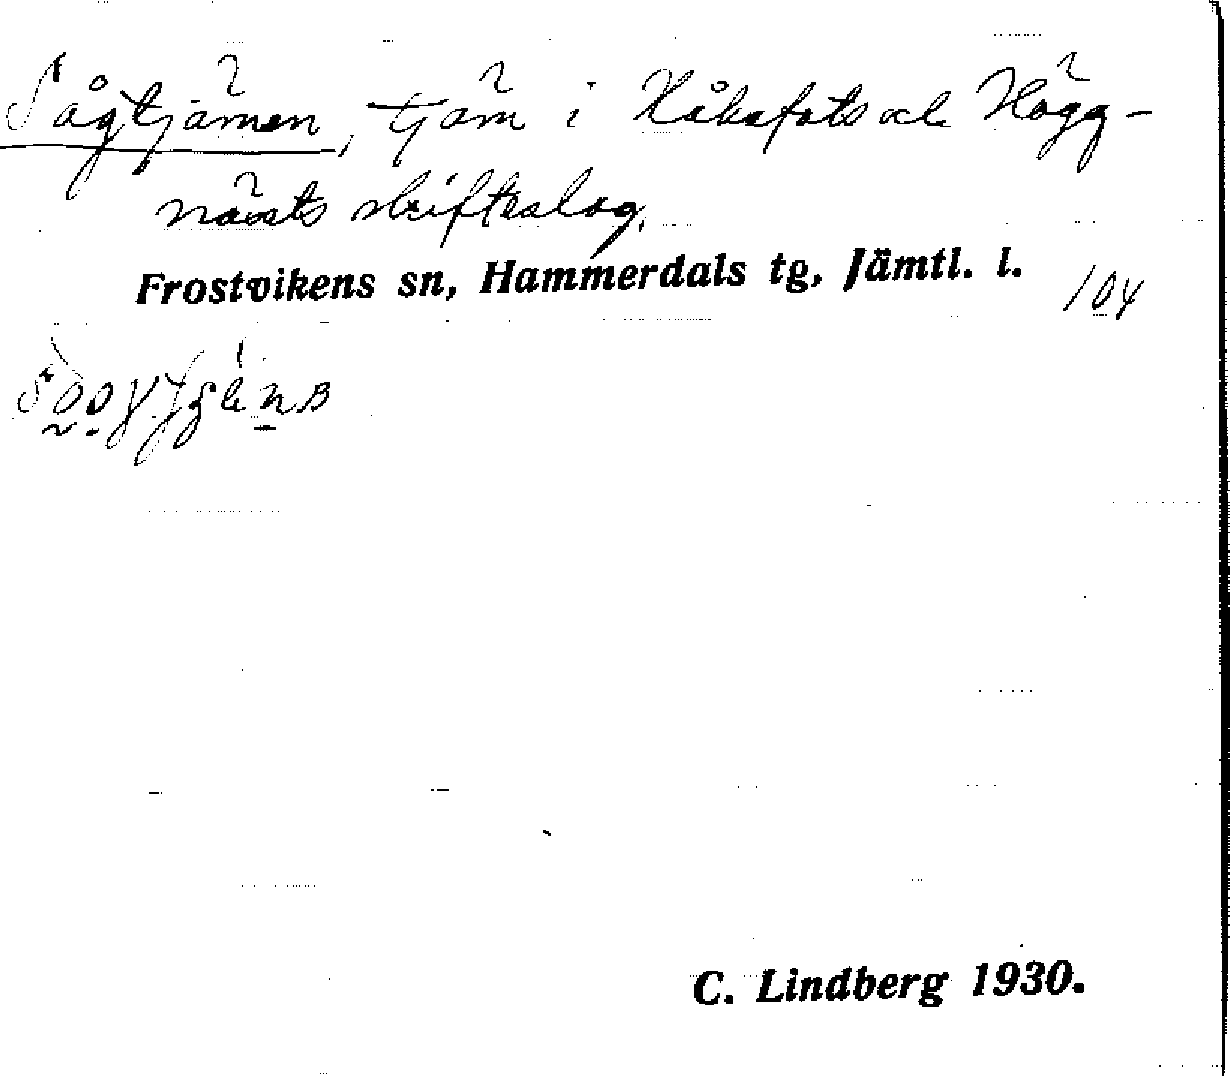 Sågtjärnen, tjärn i Kåkafots och Högg-
näsets skifteslag.
Frostvikens sn, Hammerdals tg, Jämtl. l.
104
C. Lindberg 1930.